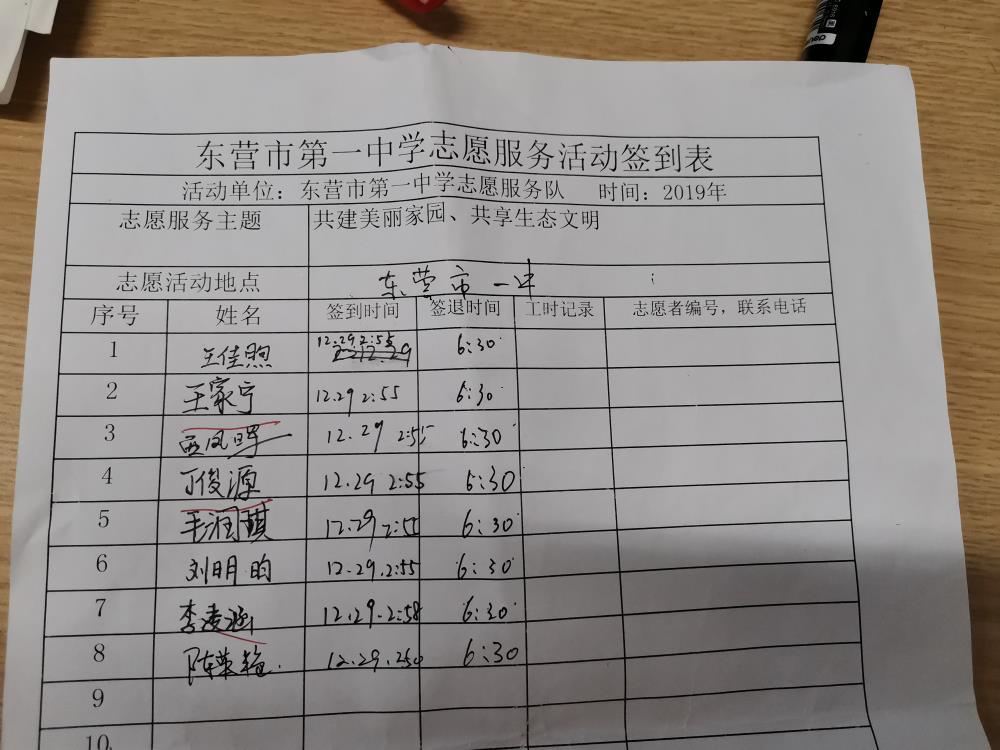 东营市第一中学志愿服务活动签到表
活动单位：东营市第一中学志愿服务队 时间：2019年
志愿服务主题 共建美丽家园、共享生态文明
志愿活动地点 东营市一中
序号 姓名 签到时间 签退时间 工时记录 志愿者编号，联系电话
1 王佳煦 12.29.2:55 6:30
2 王家宁 12.29 2:55 6:30
3 12.29 2:55 6:30
4 丁俊源 12.29 2:55 6:30
5 毛润琪 12.29 2:55 6:30
6 刘明昀 12.29.2:55 6:30
7 李凌涵 12.29.2:58 6:30
8 12.29.250 6:30
9
10